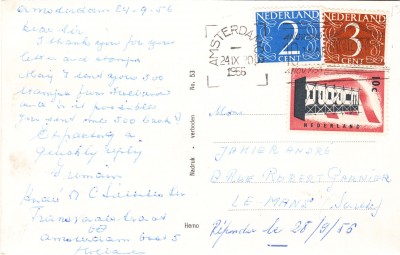 Amsterdam 24-9-56
Dear Sir
I thank you for your
letter and stamps
May I send you 300
stamps from Holland
and is it possible
you sent me 300 back?
Expecting a
quickly reply
I remain
Transvaalstraat
Amsterdam Oost
Holland
Nr. 53
Nadruk - verboden
Hemo
AMSTERDAM
24 IX 20
1956
NEDERLAND
2
CENT
NEDERLAND
3
CENT
10c
NEDERLAND
JANIER ANDRÉ
RUE ROBERT GARNIER
LE MANS (Sarthe)
Répondu le 28/9/56